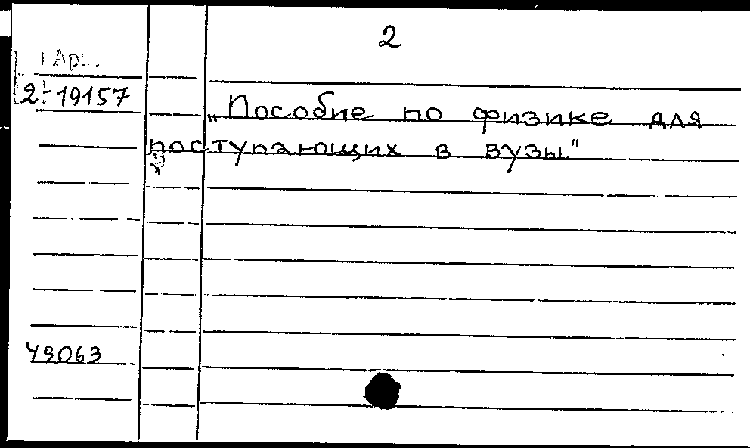 2
Арх.
2-19157
„Пособие по физике для
поступающих в вузы"
49063